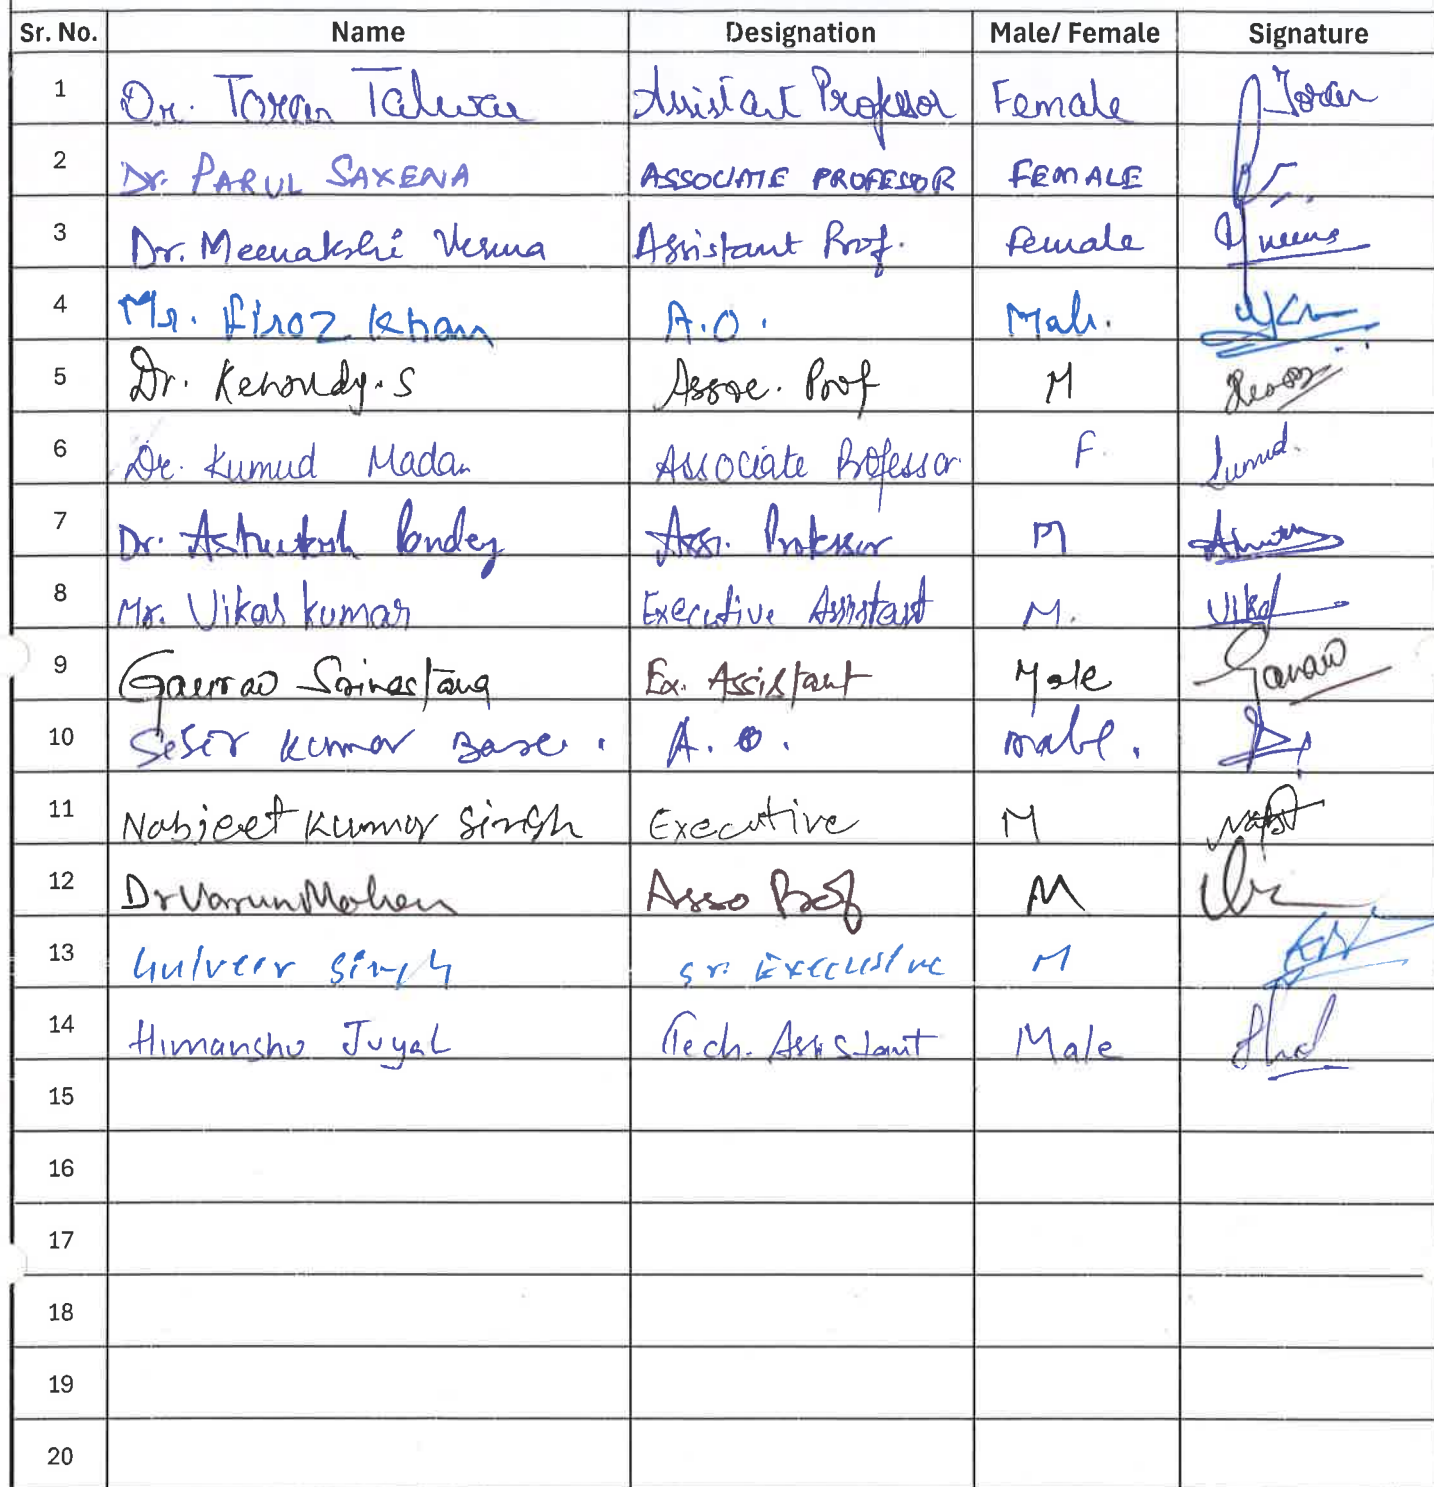 Sr. No. Name Designation Male/ Female Signature
1 Dr. Toran Talwar Assistant Professor Female Toran
2 Dr. PARUL SAXENA ASSOCIATE PROFESSOR FEMALE
3 Dr. Meenakshi Verma Assistant Prof. Female
4 Mr. Firoz Khan A.O. Male.
5 Dr. Kenondy.S Assoc. Prof M
6 Dr. Kumud Madan Associate Professor F. Kumud.
7 Dr. Ashutosh Pandey Ass. Professor M
8 Mr. Vikas Kumar Executive Assistant M. Vikas
9 Gaurav Srivastava Ex. Assistant Male Gaurav
10 Sesir Kumar Bose. A.O. male.
11 Nabjeet Kumar Singh Executive M
12 Dr Varun Mohan Asso Prof M
13 Kulveer Singh Sr. Executive M
14 Himanshu Juyal Tech. Assistant Male
15
16
17
18
19
20